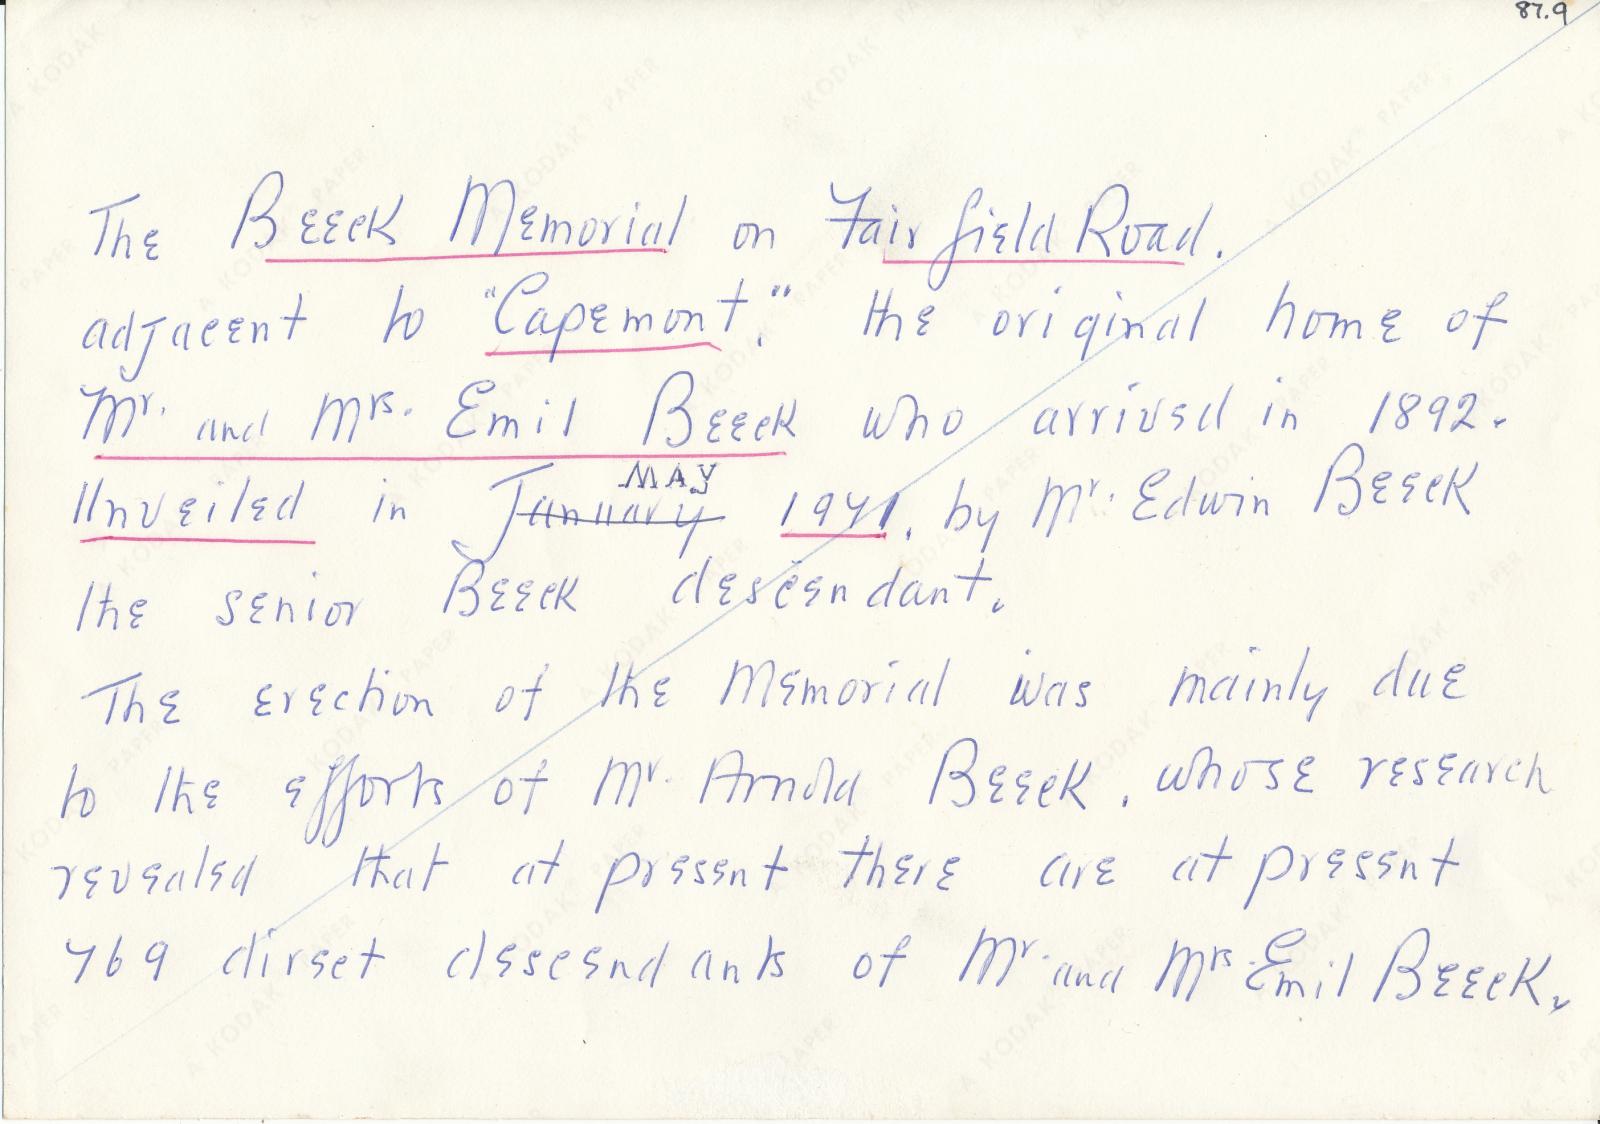 87.9
The Beeck Memorial on Fairfield Road.
adjacent to "Capemont". the original home of
Mr. and Mrs. Emil Beeck who arrived in 1892.
MAY
Unveiled in January 1971. by Mr. Edwin Beeck
the senior Beeck descendant.
The erection of the Memorial was mainly due
to the efforts of Mr. Arnold Beeck. whose research
revealed that at present there are at present
769 direct descendants of Mr. and Mrs. Emil Beeck.
A KODAK PAPER